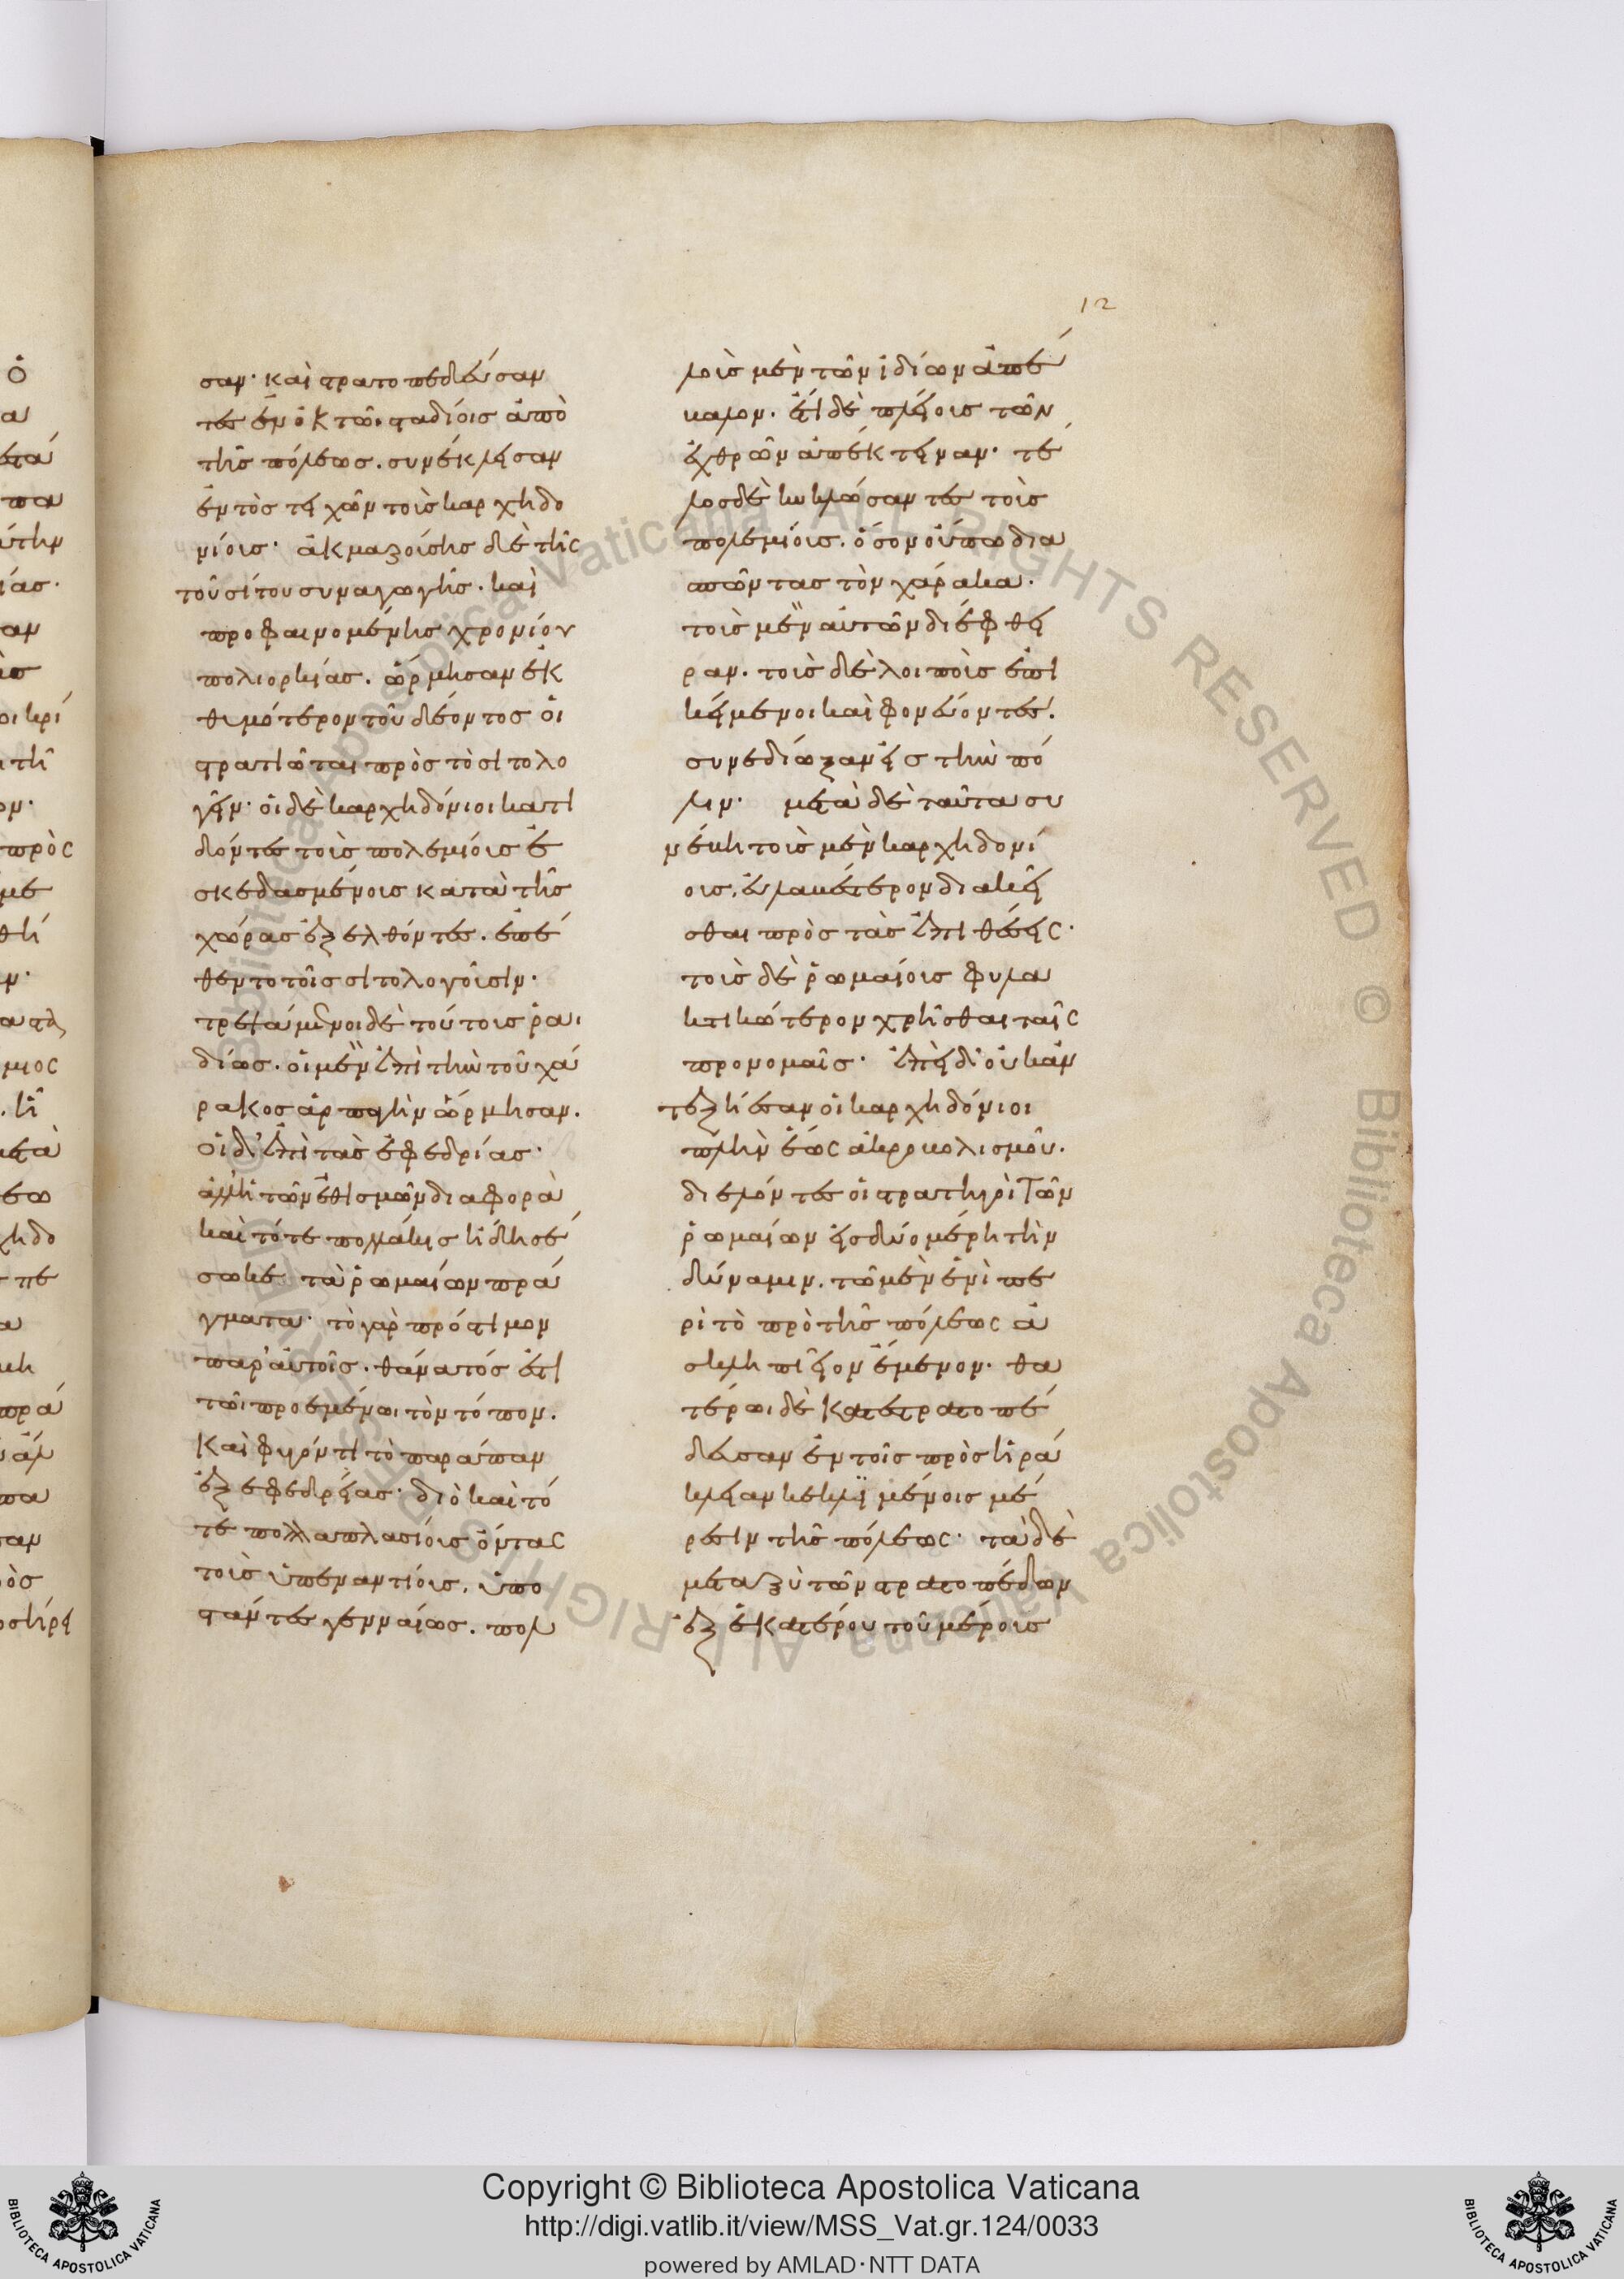 12
σαν· καὶ στρατοπεδεύσαν
τες ἐν ὀκτὼ· σταδίοις ἀπὸ
τῆς πόλεως. συνέκλεισαν
ἐντὸς τειχῶν τοὺς καρχηδο
νίους· ἀκμαζούσης δὲ τῆς
τοῦ σίτου συναγωγῆς. καὶ
προφαινομένης χρονίου
πολιορκίας. ὥρμησαν ἐκ
θυμότερον τοῦ δέοντος οἱ
στρατιῶται πρὸς τὸ σιτολο
γεῖν· οἱ δὲ καρχηδόνιοι κατι
δόντες τοὺς πολεμίους ἐ
σκεδασμένους κατὰ τῆς
χώρας ἐξελθόντες. ἐπέ
θεντο τοῖς σιτολογοῦσιν·
τρεψάμενοι δὲ τούτους ῥαι
δίως. οἱ μὲν ἐπὶ τὴν τοῦ χά
ρακος ἁρπαγὴν ὥρμησαν.
οἱ δ' ἐπὶ τὰς ἐφεδρίας·
ἀλλ' ἡ τῶν ἐθισμῶν διαφορὰ
καὶ τότε πολλάκις ἤδη σέ
σωκε τὰ ῥωμαίων πρά
γματα· τὸ γὰρ πρόστιμον
παρ' αὐτοῖς. θάνατός ἐστι
τῶι προεμένωι τὸν τόπον.
καὶ φυγόντι τὸ παράπαν
ἐξ ἐφεδρείας· διὸ καὶ τό
τε πολλαπλασίους ὄντας
τοὺς ὑπεναντίους. ὑπο
στάντες γενναίως. πολ
λοὺς μὲν τῶν ἰδίων ἀπέ
βαλον. ἔτι δὲ πλείους τῶν
ἐχθρῶν ἀπέκτειναν· τέ
λος δὲ κυκλώσαντες τοὺς
πολεμίους. ὅσον οὔπω δια
σπῶντας τὸν χάρακα.
τοὺς μὲν αὐτῶν διέφθει
ραν. τοὺς δὲ λοιποὺς ἐπι
κείμενοι καὶ φονεύοντες.
συνεδίωξαν εἰς τὴν πό
λιν· μετὰ δὲ ταῦτα συ
νέβη τοὺς μὲν καρχηδονί
ους, εὐλαβέστερον διακεῖ
σθαι πρὸς τὰς ἐπιθέσεις·
τοὺς δὲ ῥωμαίους φυλα
κτικώτερον χρῆσθαι ταῖς
προνομαῖς· ἐπεὶ δ' οὐκ ἀν
τεξήεσαν οἱ καρχηδόνιοι
πλὴν ἕως ἀκροβολισμοῦ.
διελόντες οἱ στρατηγοὶ τῶν
ῥωμαίων εἰς δύο μέρη τὴν
δύναμιν. τῶ μὲν ἑνὶ πε
ρὶ τὸ πρὸ τῆς πόλεως ἀ
σκληπιεῖον ἔμενον· θα
τέρωι δὲ κατεστρατοπέ
δευσαν ἐν τοῖς πρὸς ἡρά
κλειαν κεκλιμένοις μέ
ρεσιν τῆς πόλεως· τὰ δὲ
μεταξὺ τῶν στρατοπέδων
ἐξ ἑκατέρου τοῦ μέρους
Copyright © Biblioteca Apostolica Vaticana
http://digi.vatlib.it/view/MSS_Vat.gr.124/0033
powered by AMLAD·NTT DATA